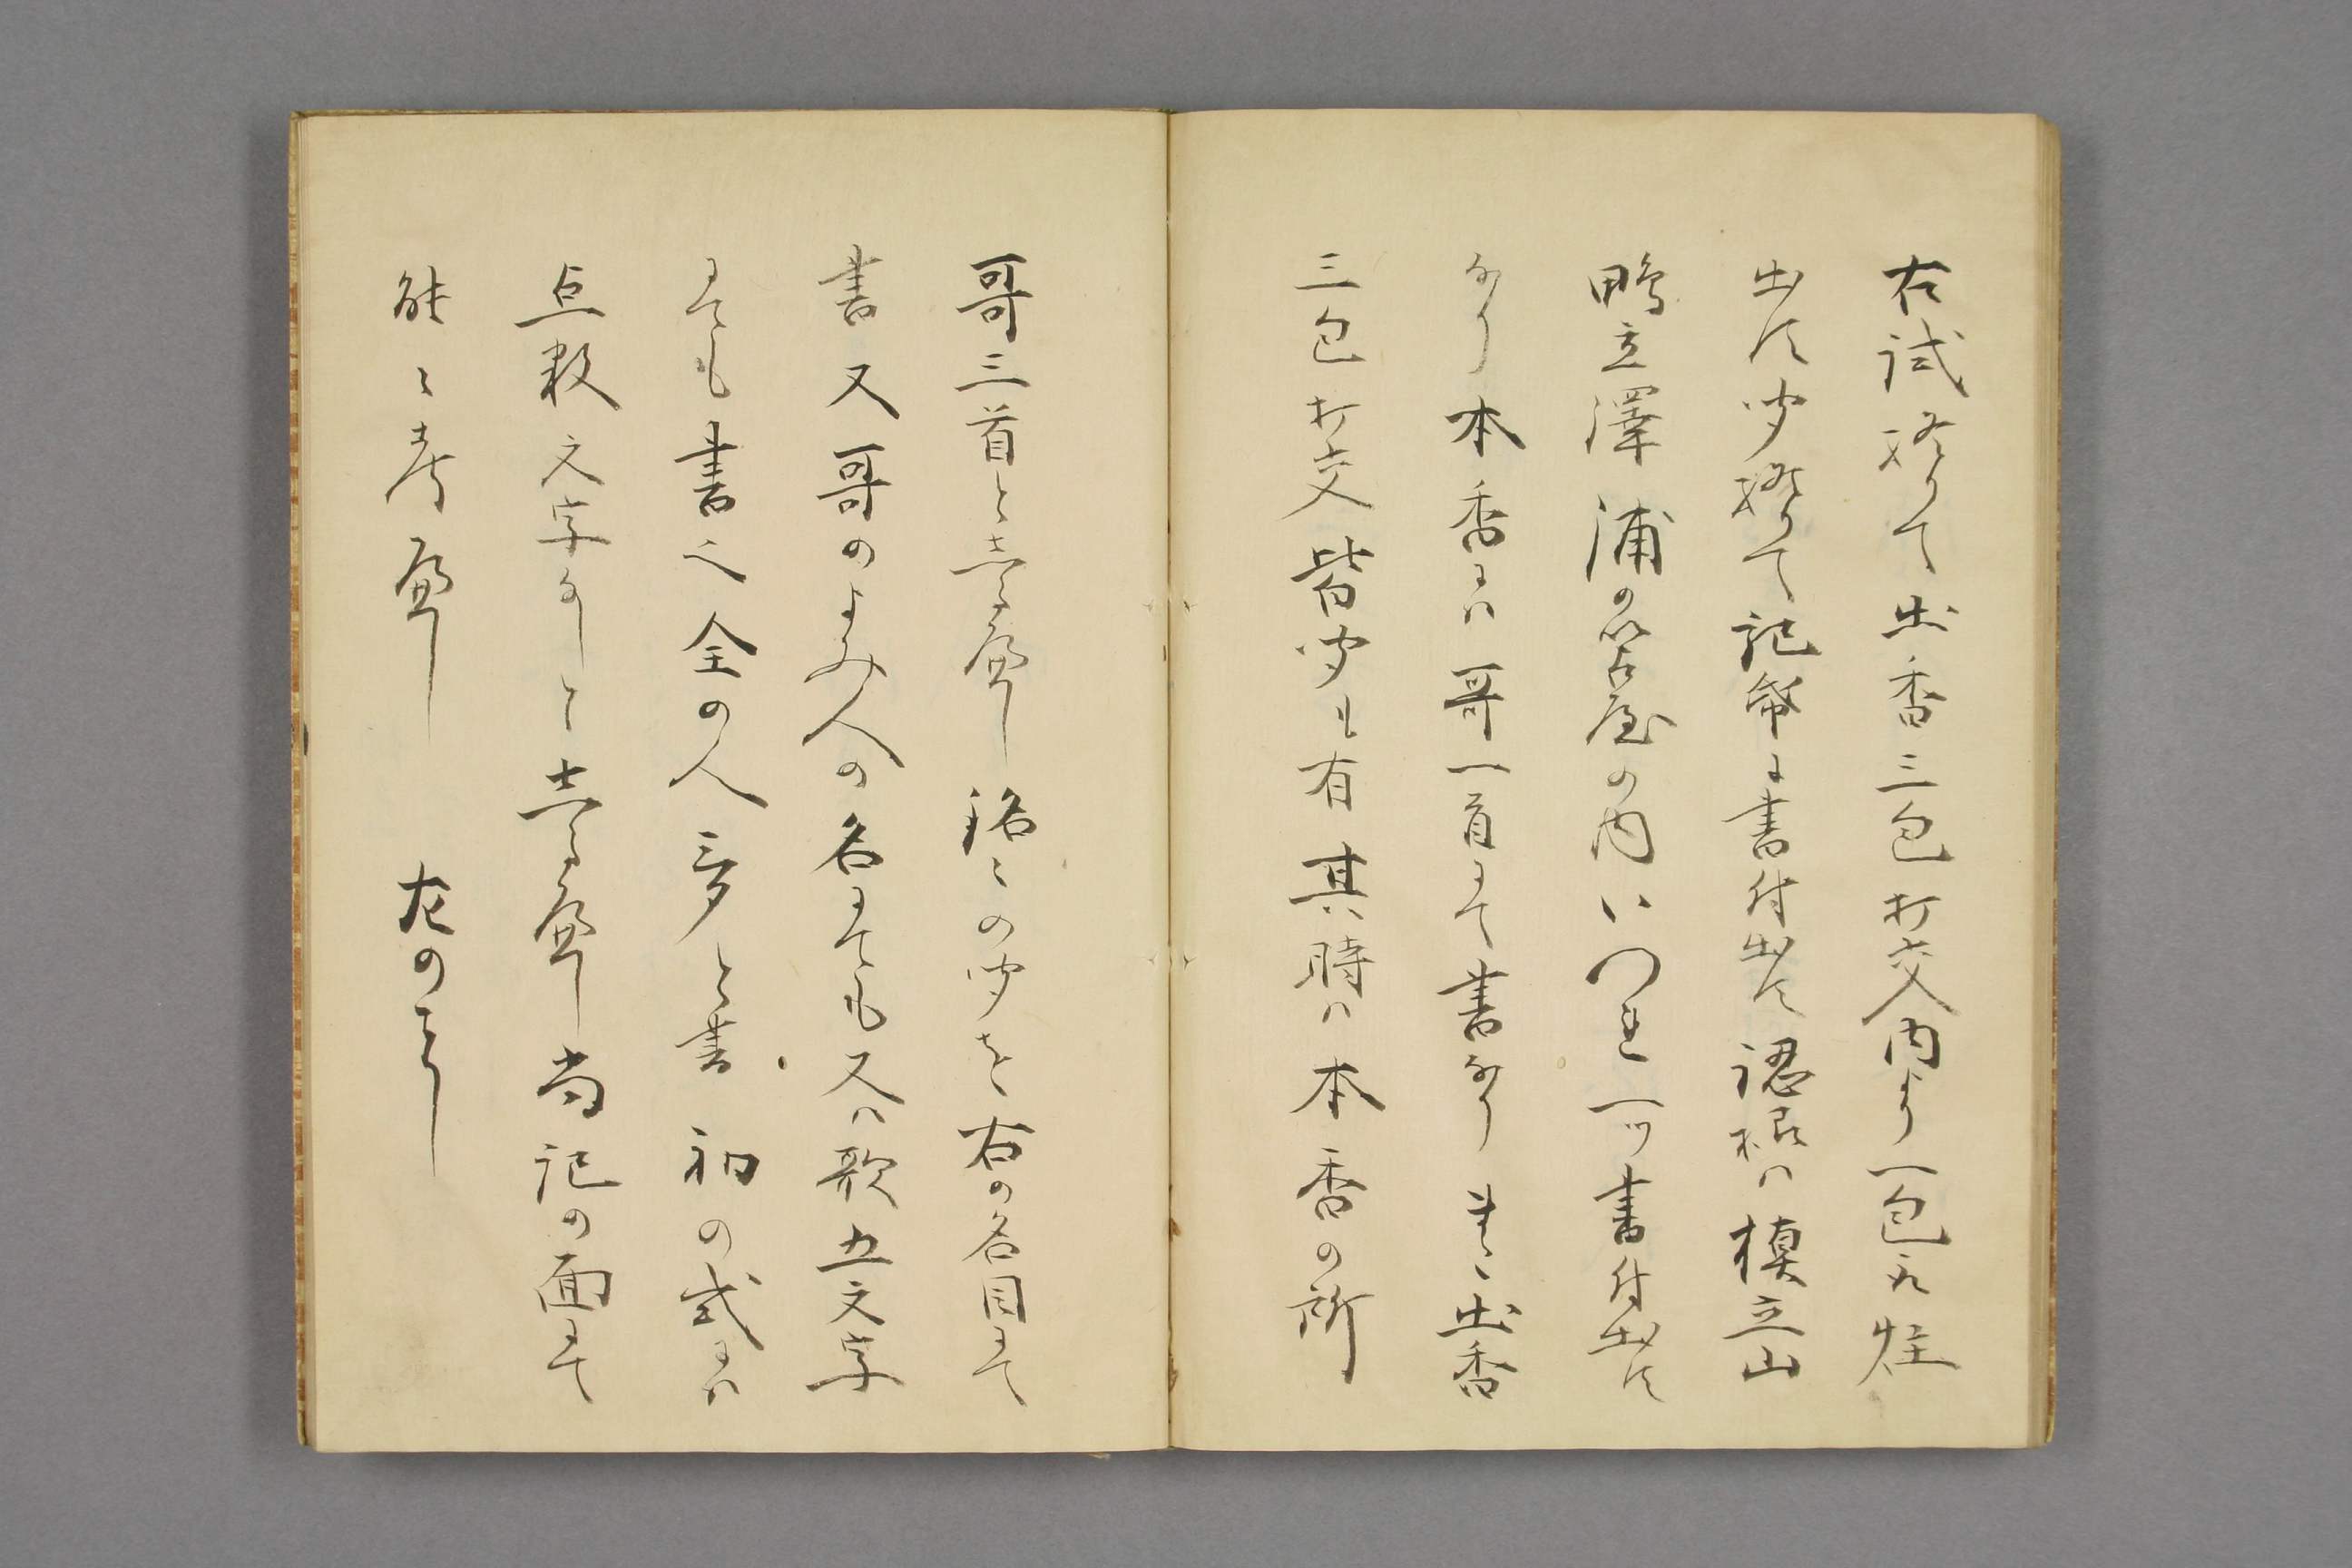 右試終りて出香三包打交内より一包宛炷
出す聞終りて記紙に書付出す認様は槙立山
鴫立澤浦の苫屋の内いつれ一ツ書付出す
なり本香には哥一首にて書なり 出香
三包打交皆聞も有其時は本香の所
哥三首としるへし 銘々の聞を右の名目にて
書又哥のよみ人の名にても又は歌五文字
にても書之全の人三夕と書初の式には
点数文字なしとしるへし尚記の面にて
能々考へし 左のことし